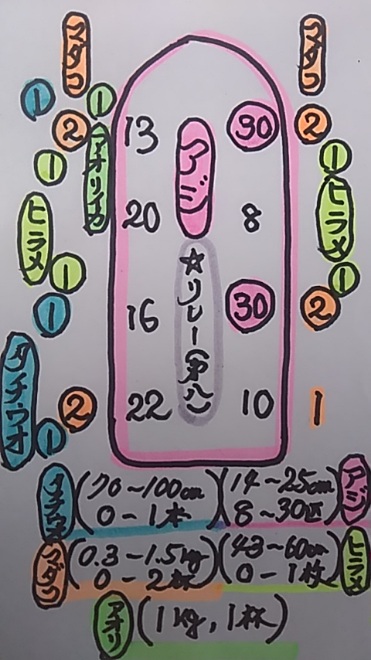 マダコ マダコ
1 1 2 13 30 2
アオリイカ アジ 1
1 ヒラメ
ヒラメ 20 8
1 1
1 16 30 2
☆リレー(第八)
タチウオ 2 22 10 1
1
タチウオ (70~100cm 0-1本) (14~25cm 8~30匹) アジ
マダコ (0.3-1.5kg 0-2杯) (43~60cm 0-1枚) ヒラメ
アオリ (1kg,1杯)